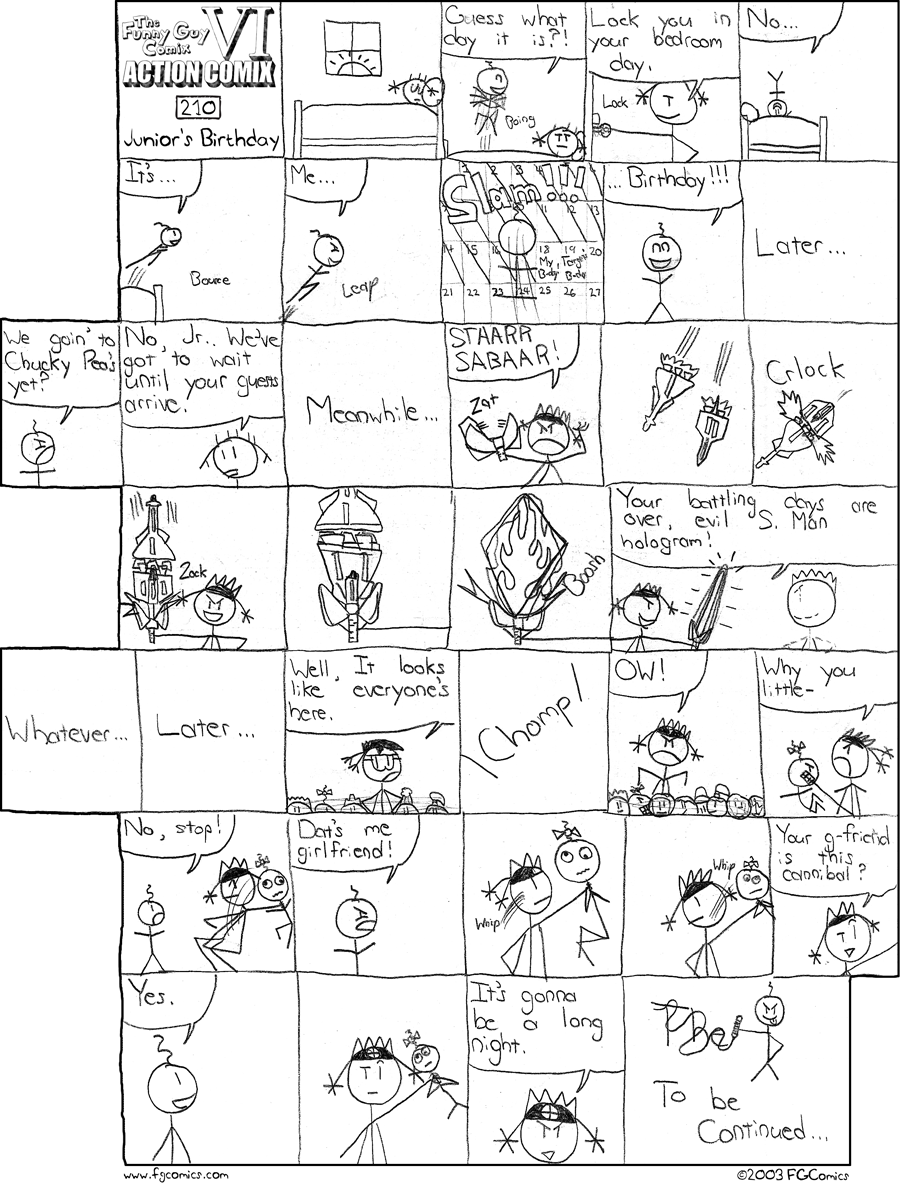 The
Funny Guy
Comix
VI
ACTION COMIX
210
Junior's Birthday
Guess what
day it is?!
Boing
Lock you in
your bedroom
day.
Lock
No...
It's...
Bounce
Me...
Leap
Slam!!!
1 2 3 4
11 12 13
14 15 16 18 19 20
My
B-day
B-day
21 22 23 24 25 26 27
... Birthday!!!
Later...
We goin' to
Chucky Pea's
yet?
No, Jr.. We've
got to wait
until your guests
arrive.
Meanwhile...
STAARR
SABAAR!
Zat
Crlock
Zock
Boosh
Your battling days are
over, evil S. Man
hologram!
Whatever...
Later...
Well, It looks
like everyone's
here.
Chomp!
OW!
Why you
little-
No, stop!
Dat's me
girlfriend!
Whip
Whip
Your g-friend
is this
cannibal?
Yes.
It's gonna
be a long
night.
To be
Continued...
www.fgcomics.com
©2003 FGComics